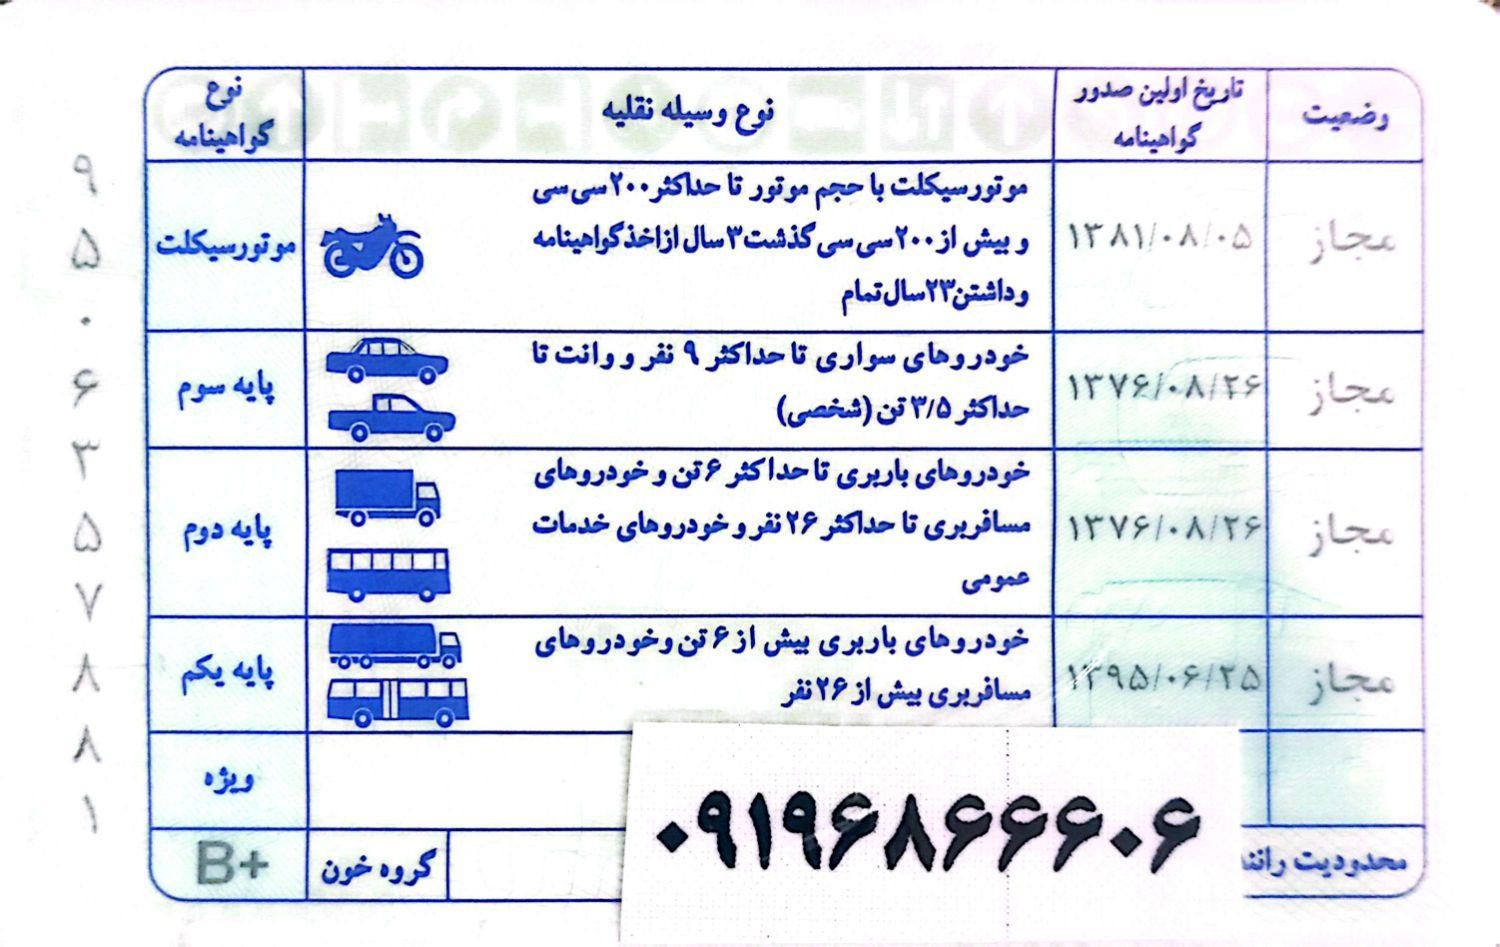 وضعیت
تاریخ اولین صدور
گواهینامه
نوع وسیله نقلیه
نوع
گواهینامه
مجاز
۱۳۸۱/۰۸/۰۵
موتورسیکلت با حجم موتور تا حداکثر ۲۰۰ سی سی
و بیش از ۲۰۰ سی سی گذشت ۳ سال از اخذ گواهینامه
و داشتن ۲۳ سال تمام
موتورسیکلت
مجاز
۱۳۷۶/۰۸/۲۶
خودروهای سواری تا حداکثر ۹ نفر و وانت تا
حداکثر ۳/۵ تن (شخصی)
پایه سوم
مجاز
۱۳۷۶/۰۸/۲۶
خودروهای باربری تا حداکثر ۶ تن و خودروهای
مسافربری تا حداکثر ۲۶ نفر و خودروهای خدمات
عمومی
پایه دوم
مجاز
۱۳۹۵/۰۶/۲۵
خودروهای باربری بیش از ۶ تن و خودروهای
مسافربری بیش از ۲۶ نفر
پایه یکم
ویژه
محدودیت رانند
۰۹۱۹۶۸۶۶۶۰۶
گروه خون
B+
۹
۵
۰
۶
۳
۵
۷
۸
۸
۱